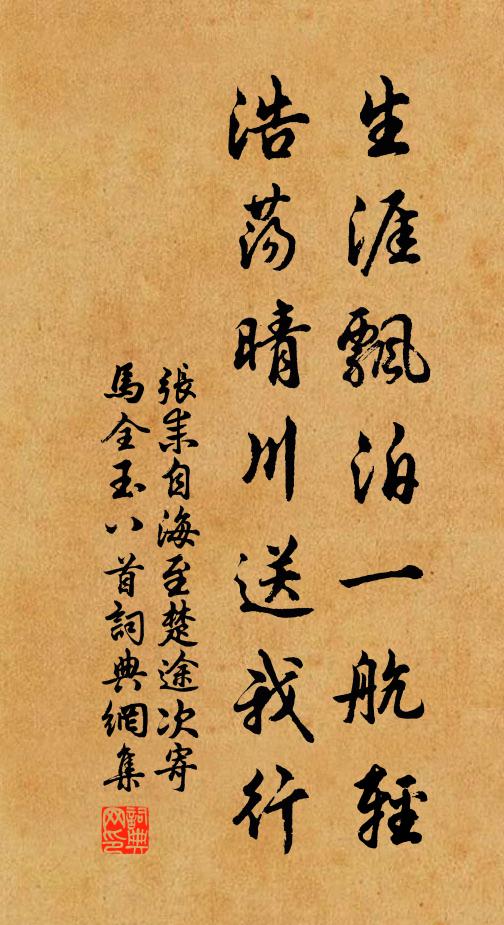 生涯飄泊一航輕
浩蕩晴川送我行
張耒自海至楚途次寄
馬全玉八首詞典網集
詞典
网印